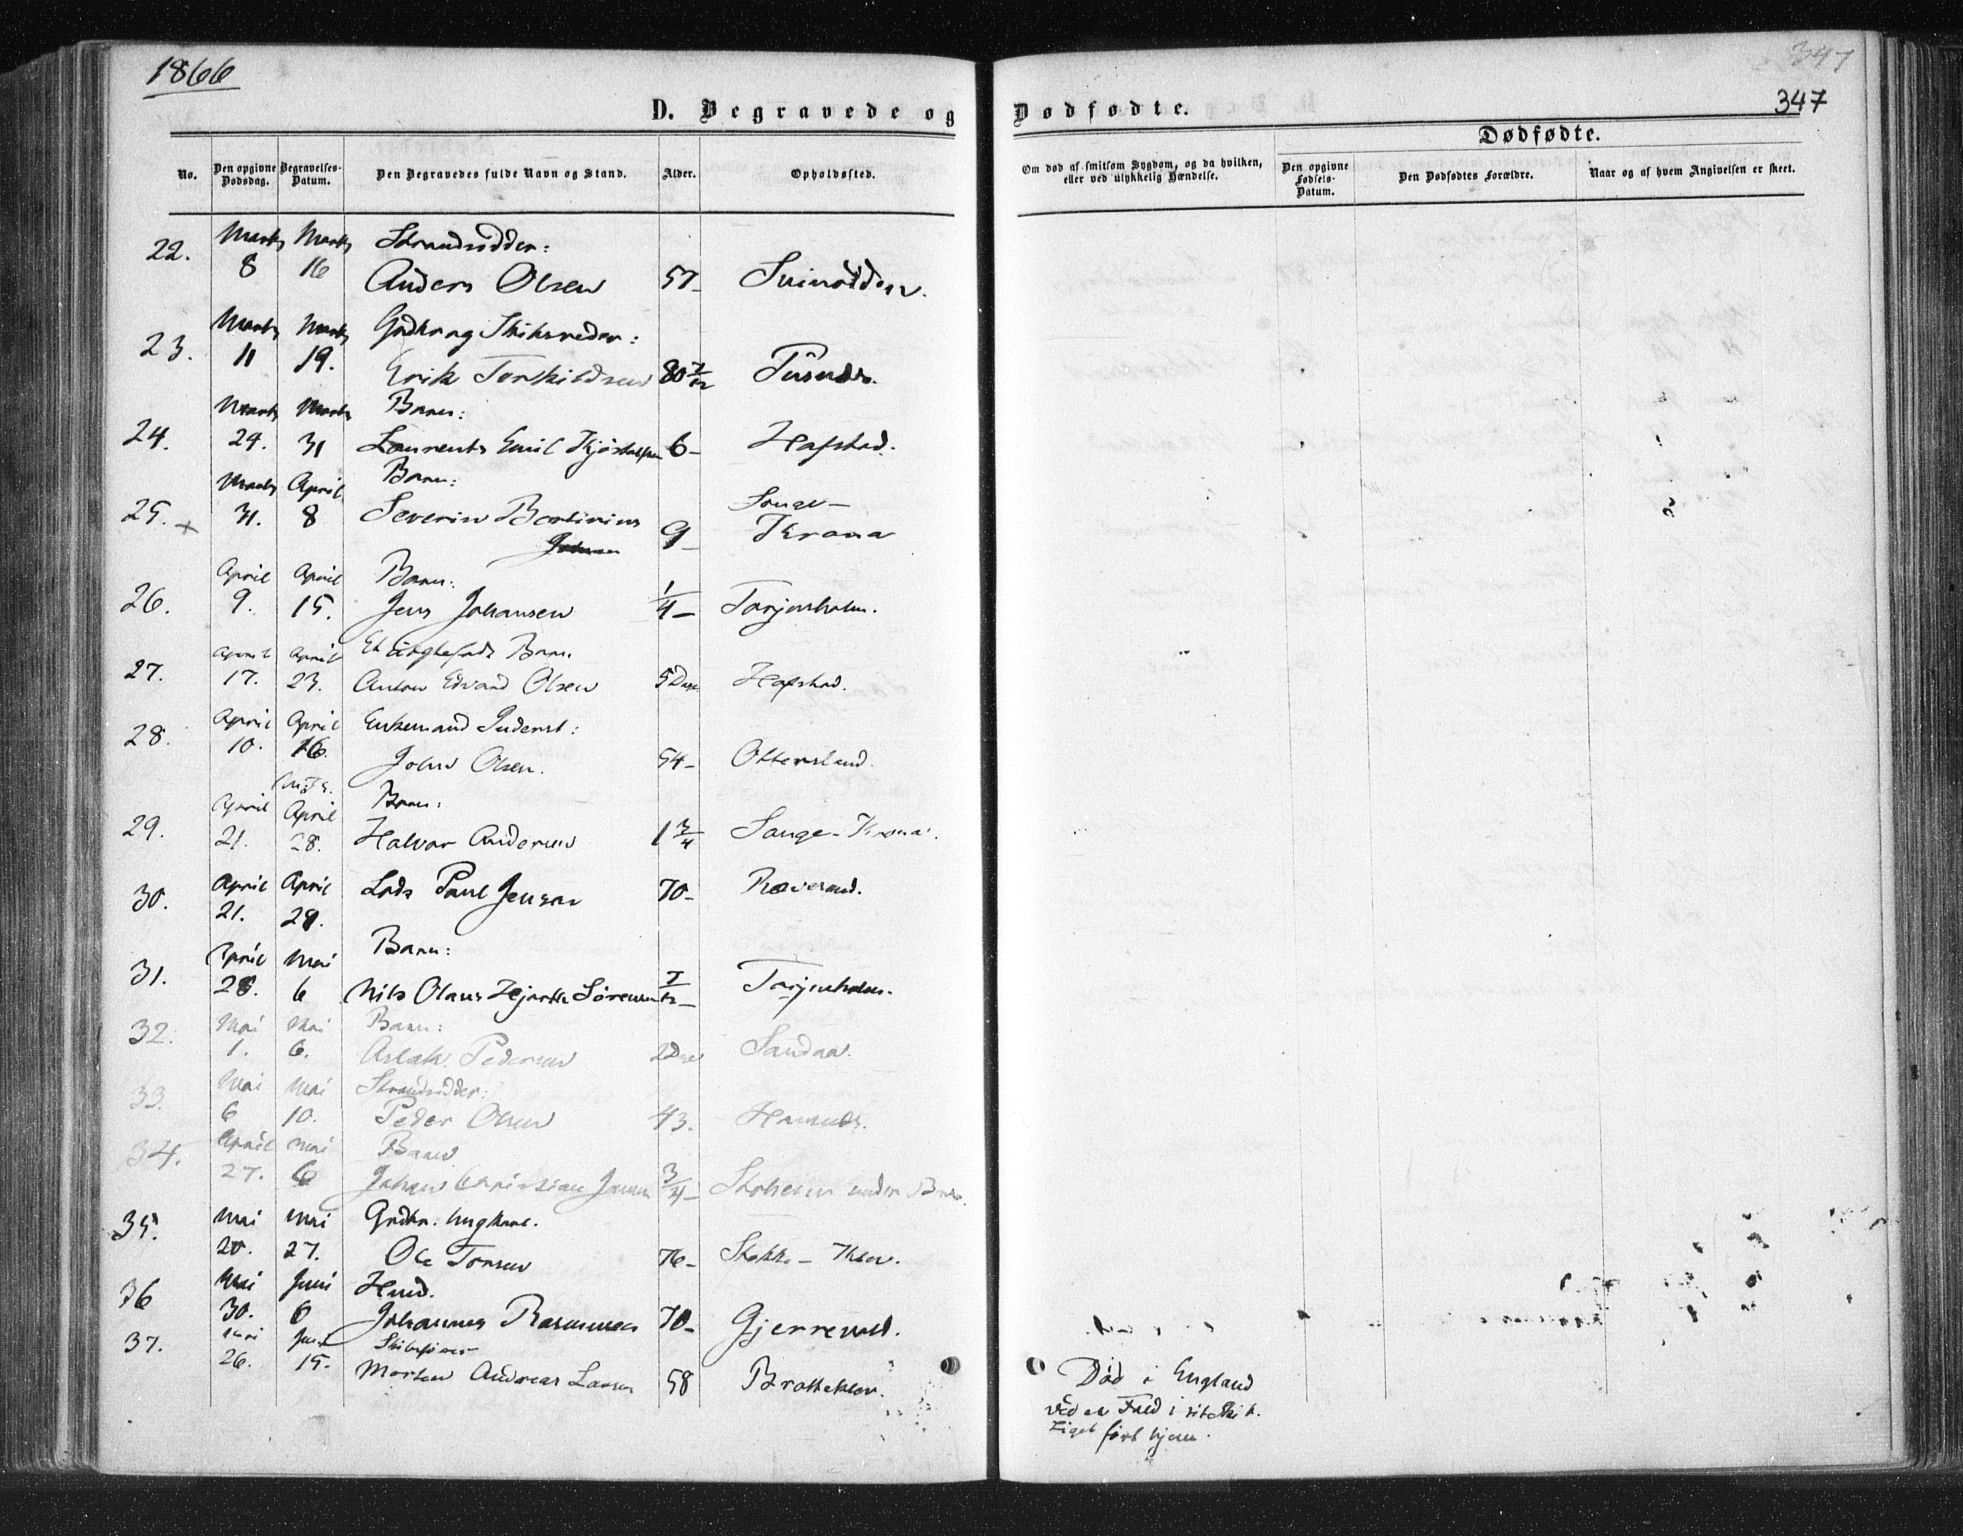 1866
347
347
D. Begravede og Dødfødte.
Dødfødte.
No.
Den opgivne Dødsdag.
Begravelses-Datum.
Den Begravedes fulde Navn og Stand.
Alder.
Opholdssted.
Om død af smitsom Sygdom, og da hvilken, eller ved ulykkelig Hændelse.
Den opgivne Fødsels-Datum.
Den Dødfødtes Forældre.
Naar og af hvem Angivelsen er skeet.
22. Marts 8 Marts 16 Strandsidder:
Anders Olsen 57
23. Marts 11 Marts 19. Gdbr og Skibsreder:
Erik Terkildsen 80 7/12
24. Marts 24. Marts 31 Barn:
Laurents Emil 6 Hafstad.
25. Marts 31. April 8 Barn:
Severin 9 Songe-
Krona
26. April 9. April 15. Barn:
Jens Johansen 1/4 Torjusholm.
27. April 17. April 23. Et uægtefødt Barn.
Anton Edvard Olsen 5 Dage Hafstad.
28. April 10. April 16. Enkemand Inderst:
John Olsen. 54 Ottersland.
29. April 21. April 28. Barn:
Halvor Andersen 1 3/4 Songe-Krona.
30. April 21. April 29. Lods Paul Jensen 70 Røvesand.
31. April 28. Mai 6 Barn:
Nils Olaus Sørensen 7/12 Torjusholm.
32. Mai 1. Mai 6. Barn:
Aslak Pedersen 2 Dage Sandaa.
33. Mai 6 Mai 10. Strandsidder:
Peder Olsen 43.
34. April 27. Mai 6 Barn
Johan Christian Jensen 3/4 under
35. Mai 20. Mai 27. Gdbr. Ungkarl.
Ole Torsen 76
36 Mai 30. Juni 6
Johannes Rasmussen 70
37. Mai 26. Juni 15. Skibsfører
Morten Andreas Larsen 58 Bratteklev.
Død i England
ved et Fald i sit Skib.
Liget ført hjem.